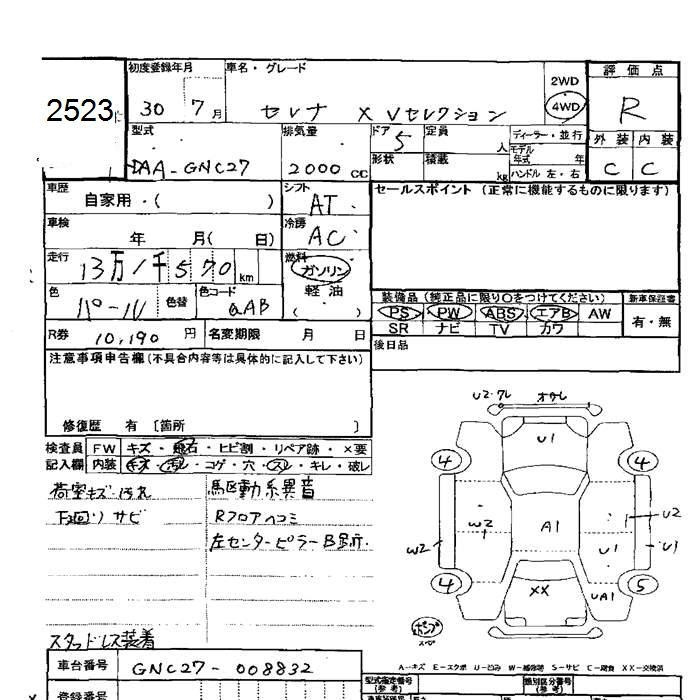 初度登録年月 車名・グレード 2WD 評価点
2523 30 7月 セレナ X Vセレクション 4WD R
型式 排気量 ドア 5 定員 人 ディーラー・並行 外装 内装
DAA-GNC27 2000 CC 形状 積載 kg モデル年式 年 ハンドル 左・右 C C
車歴 自家用・( ) シフト AT セールスポイント (正常に機能するものに限ります)
車検 年 月( 日) 冷房 AC
走行 13万1千570 km 燃料 ガソリン
色 パール 色替 色コード QAB 軽油 ( )
装備品 (純正品に限り○をつけてください) 新車保証書
PS PW ABS エアB AW 有・無
SR ナビ TV カワ
R券 10,190 円 名変期限 月 日 後日品
注意事項申告欄(不具合内容等は具体的に記入して下さい)
修復歴 有 [箇所 ]
検査員 FW キズ・飛石・ヒビ割・リペア跡・×要
記入欄 内装 キズ・汚レ・コゲ・穴・スレ・キレ・破レ
荷室キズ・汚れ 駆動系異音
下廻り サビ Rフロアヘコミ
左センターピラー
スタッドレス装着
U2
U1
4 4
W2 A1 U2
W2 U1 U1
4 XX UA1 5
ポンプ
A-キズ E-エクボ U-凹み W-補修跡 S-サビ C-腐食 XX-交換済
車台番号 GNC27-008832 型式指定番号 (参考) 類別区分番号 (参考)
登録番号